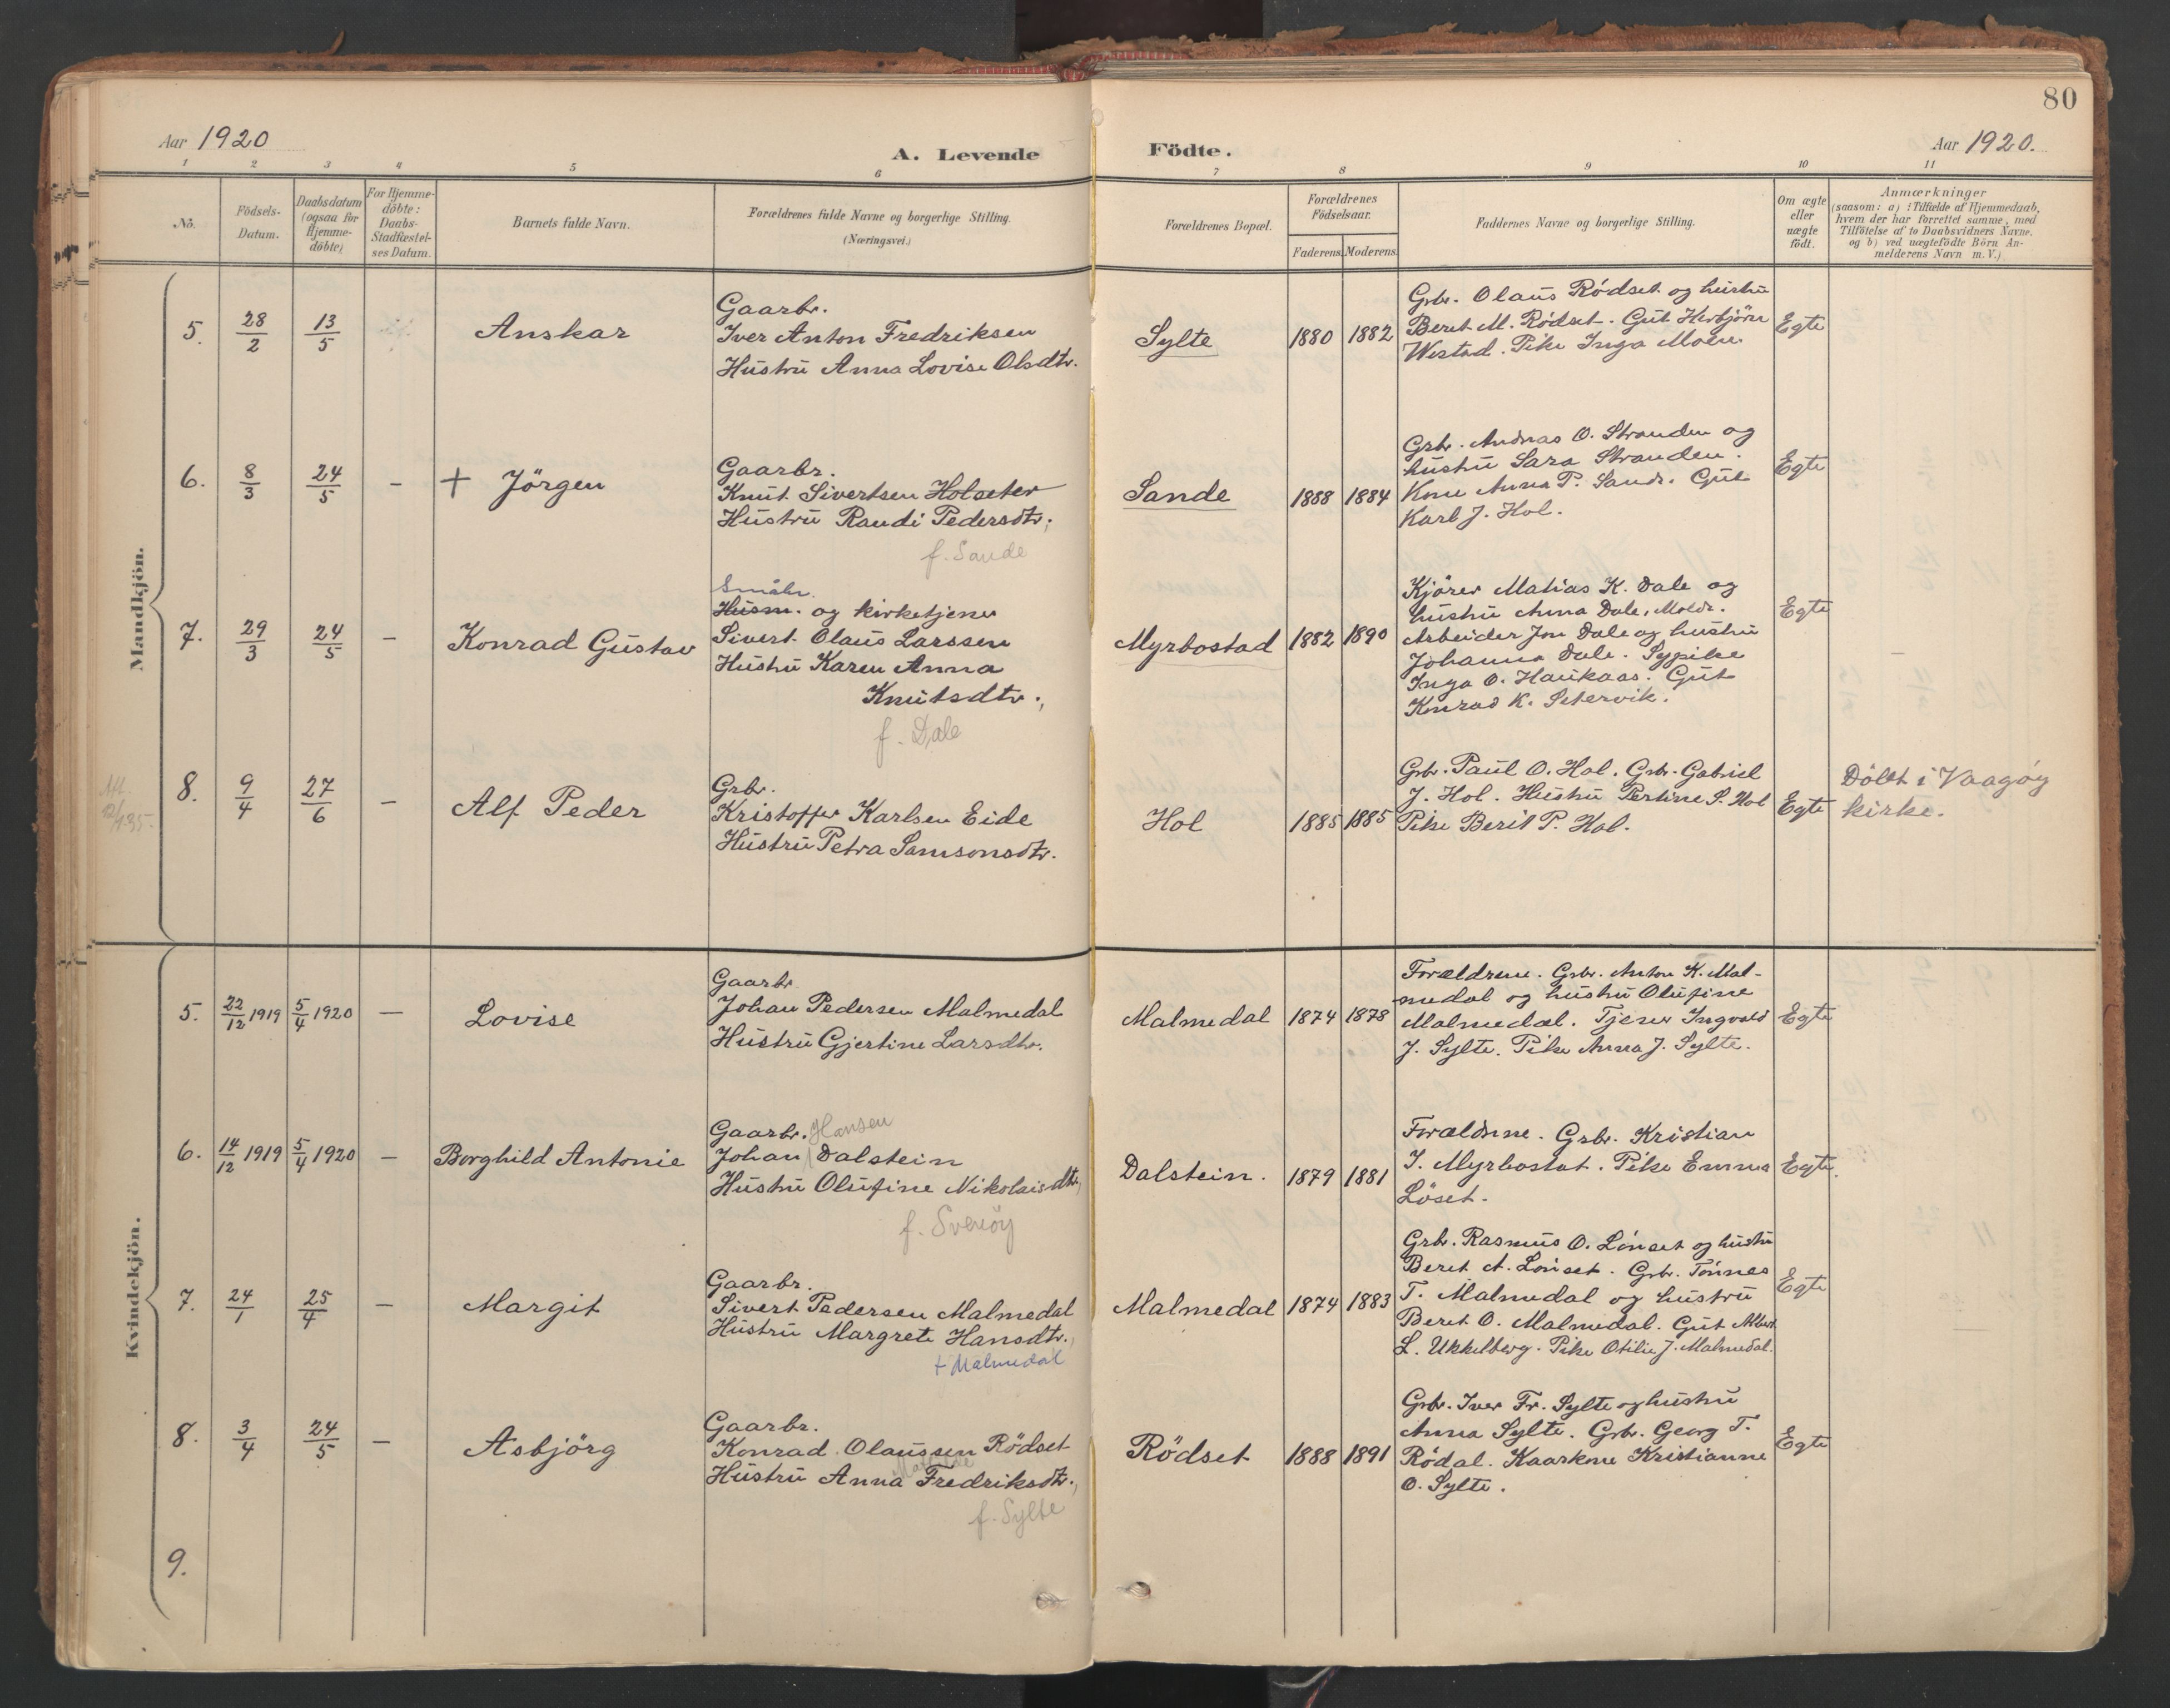 80
Aar 1920
A. Levende Födte.
Aar 1920.
1 2 3 4 5 6 7 8 9 10 11
No.
Födsels-
Datum.
Daabsdatum
(ogsaa for
Hjemme-
döbte)
For Hjemme-
döbte:
Daabs-
Stadfæstel-
ses Datum.
Barnets fulde Navn.
Forældrenes fulde Navne og borgerlige Stilling.
(Næringsvei.)
Forældrenes Bopæl.
Forældrenes
Födselsaar.
Faderens. Moderens.
Faddernes Navne og borgerlige Stilling.
Om ægte
eller
uægte
födt.
Anmærkninger
(saasom: a) i Tilfælde af Hjemmedaab,
hvem der har forrettet samme, med
Tilföielse af to Daabsvidners Navne.
og b) ved uægtefödte Börn An-
melderens Navn m.V.)
Mandkjön.
5. 28/2 13/5 Anskar
Gaarbr.
Iver Anton Fredriksen
Hustru Anna Lovise Olsdtr.
Sylte 1880 1882
Grbr. Olaus Rødset og hustru
Beret M. Rødset. Gut Herbjörn
Westad. Pike Inga Moen.
Egte
6. 8/3 24/5 – + Jörgen
Gaarbr.
Knut Sivertsen Holseter
Hustru Randi Pedersdtr.
f. Sande
Sande 1888 1884
Grbr. Andreas O. Stranden og
hustru Sara Stranden.
Kone Anna P. Sande. Gut
Karl J. Hol.
Egte
7. 29/3 24/5 – Konrad Gustav
Småbr.
Husm. og kirketjener
Sivert Olaus Larssen
Hustru Karen Anna
Knutsdtr.
f. Dale
Myrbostad 1882 1890
Kjörer Matias K. Dale og
hustru Anna Dale, Molde.
Arbeider Jon Dale og hustru
Johanna Dale. Sypike
Inga O. Haukaas. Gut
Konrad K. Setervik.
Egte
8. 9/4 27/6 – Alf Peder
Grbr.
Kristoffer Karlsen Eide
Hustru Petra Samsonsdtr.
Hol 1885 1885
Grbr. Paul O. Hol. Grbr. Gabriel
J. Hol. Hustru Pertine S. Hol
Pike Berit P. Hol.
Egte
Döbt i Vaagöy
kirke.
Kvindekjön.
5. 22/12 1919 5/4 1920 – Lovise
Gaarbr.
Johan Pedersen Malmedal
Hustru Gjertine Larsdtr.
Malmedal 1874 1878
Forældrene. Grbr. Anton K. Mal-
medal og hustru Olufine
Malmedal. Tjener Ingvald
J. Sylte. Pike Anna J. Sylte.
Egte
6. 14/12 1919 5/4 1920 – Borghild Antonie
Gaarbr. Hansen
Johan Dalstein
Hustru Olufine Nikolaisdtr.
f. Sverøy
Dalstein. 1879 1881
Forældrene. Grbr. Kristian
I. Myrbostad. Pike Emma
Löset.
Egte.
7. 24/1 25/4 – Margit
Gaarbr.
Sivert Pedersen Malmedal
Hustru Margrete Hansdtr.
f. Malmedal
Malmedal 1874 1883
Grbr. Rasmus O. Lönset og hustru
Beret A. Lönset. Grbr. Tönnes
T. Malmedal og hustru
Beret O. Malmedal. Gut Albert
L. Ukkelberg. Pike Otilie J. Malmedal.
Egte
8. 3/4 24/5 – Asbjörg
Gaarbr.
Konrad Olaussen Rödset
Mathilde
Hustru Anna Fredriksdtr.
f. Sylte
Rödset 1888 1891
Grbr. Iver Fr. Sylte og hustru
Anna Sylte. Grbr. Georg T.
Rödal. Kaarkone Kristianne
O. Sylte.
Egte
9.